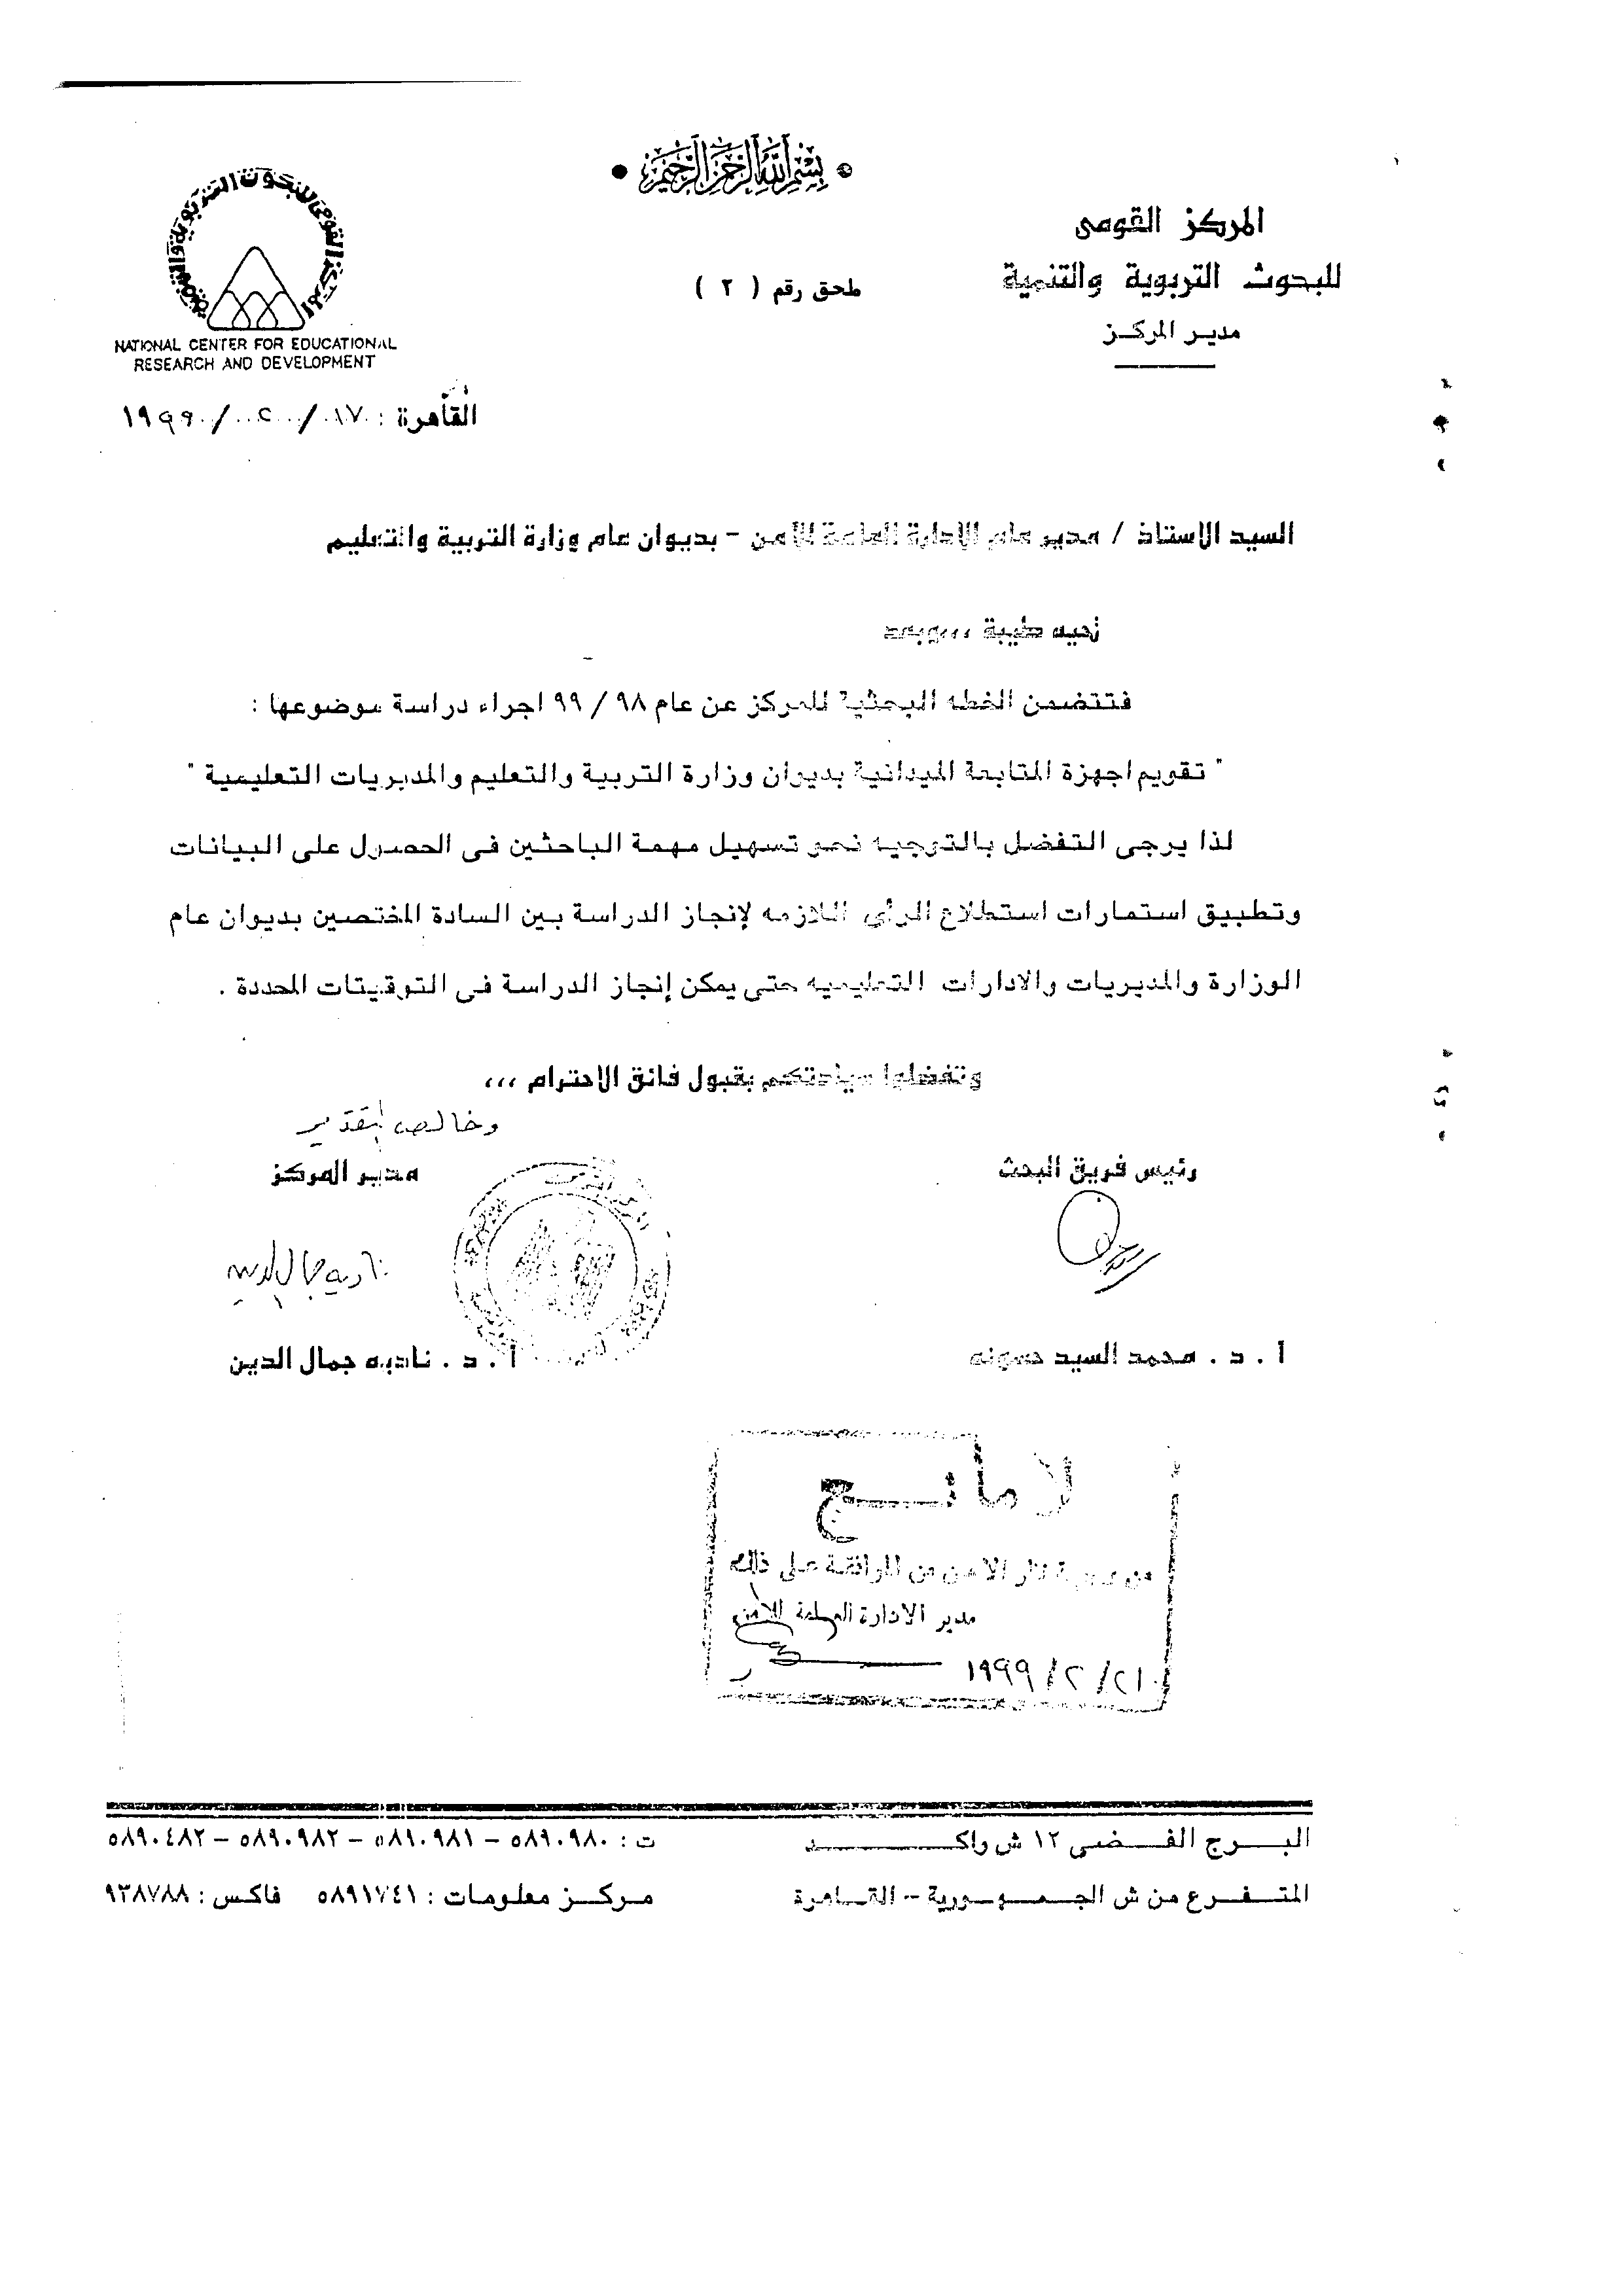 بسم الله الرحمن الرحيم
المركز القومى
للبحوث التربوية والتنمية
مدير المركز
ملحق رقم ( ٢ )
المركز القومى للبحوث التربوية والتنمية
NATIONAL CENTER FOR EDUCATIONAL
RESEARCH AND DEVELOPMENT
القاهرة : ١٧ / ٢ / ١٩٩٩
السيد الاستاذ / مدير عام الإدارة العامة للأمن - بديوان عام وزارة التربية والتعليم
تحيه طيبة ،،،وبعد
فتتضمن الخطه البحثية للمركز عن عام ٩٨ / ٩٩ اجراء دراسة موضوعها :
" تقويم اجهزة المتابعة الميدانية بديوان وزارة التربية والتعليم والمديريات التعليمية "
لذا يرجى التفضل بالتوجيه نحو تسهيل مهمة الباحثين فى الحصول على البيانات
وتطبيق استمارات استطلاع الرأى اللازمه لإنجاز الدراسة بين السادة المختصين بديوان عام
الوزارة والمديريات والادارات التعليميه حتى يمكن إنجاز الدراسة فى التوقيتات المحددة .
وتفضلوا سيادتكم بقبول فائق الاحترام ،،،
وخالص التقدير
رئيس فريق البحث
مدير المركز
نادية جمال الدين
أ . د . محمد السيد حسونه
أ . د . ناديه جمال الدين
لا مانع
من وجهة نظر الامن من الموافقة على ذلك
مدير الادارة العامة للأمن
٢١ / ٢ / ١٩٩٩
البرج الفضى ١٢ ش واكد
ت : ٥٨٩٠٩٨٠ - ٥٨٩٠٩٨١ - ٥٨٩٠٩٨٢ - ٥٨٩٠٤٨٢
المتفرع من ش الجمهورية - القاهرة
مركز معلومات : ٥٨٩١٧٤١ فاكس : ٩٣٨٧٨٨